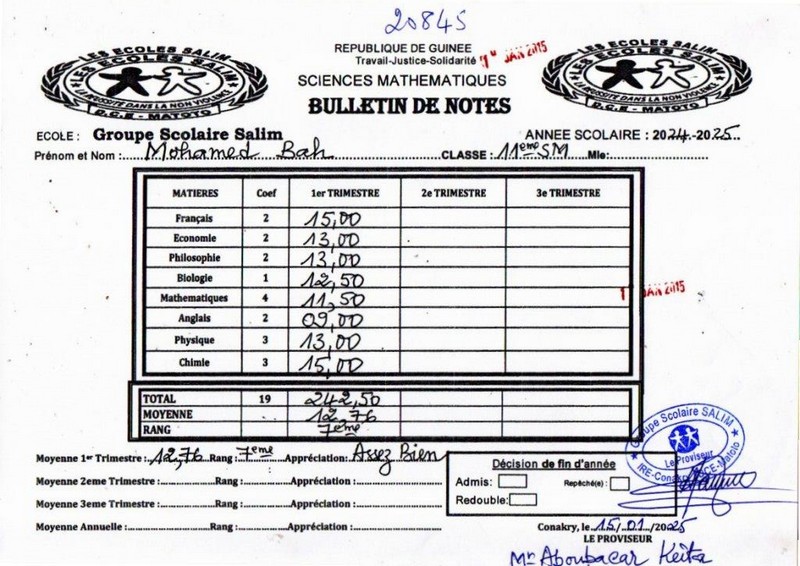 20845
REPUBLIQUE DE GUINEE
Travail-Justice-Solidarité
JAN 2015
SCIENCES MATHEMATIQUES
BULLETIN DE NOTES
LES ECOLES SALIM
LES ECOLES SALIM
D.C.E - MATOTO
LES ECOLES SALIM
LES ECOLES SALIM
D.C.E - MATOTO
ECOLE : Groupe Scolaire Salim ANNEE SCOLAIRE : 2024-2025..
Prénom et Nom :.....Mohamed Bah CLASSE :.11eme SM Mle:
MATIERES Coef 1er TRIMESTRE 2e TRIMESTRE 3e TRIMESTRE
Français 2 15,00
Economie 2 13,00
Philosophie 2 13,00
Biologie 1 12,50
Mathematiques 4 11,50
Anglais 2 09,00
Physique 3 13,00
Chimie 3 15,00
JAN 2015
TOTAL 19 242,50
MOYENNE 12,76
RANG 7eme
Moyenne 1er Trimestre :.12,76 Rang :.7eme Appréciation:.Assez Bien
Moyenne 2eme Trimestre : Rang : Appréciation :
Moyenne 3eme Trimestre : Rang : Appréciation :
Moyenne Annuelle : Rang : Appréciation :
Décision de fin d'année
Admis: Repêché(e) :
Redouble:
Groupe Scolaire SALIM
Le Proviseur
IRE-Conakry DCE-Matoto
Conakry, le.15./.01./2025
LE PROVISEUR
Mr Aboubacar Keita